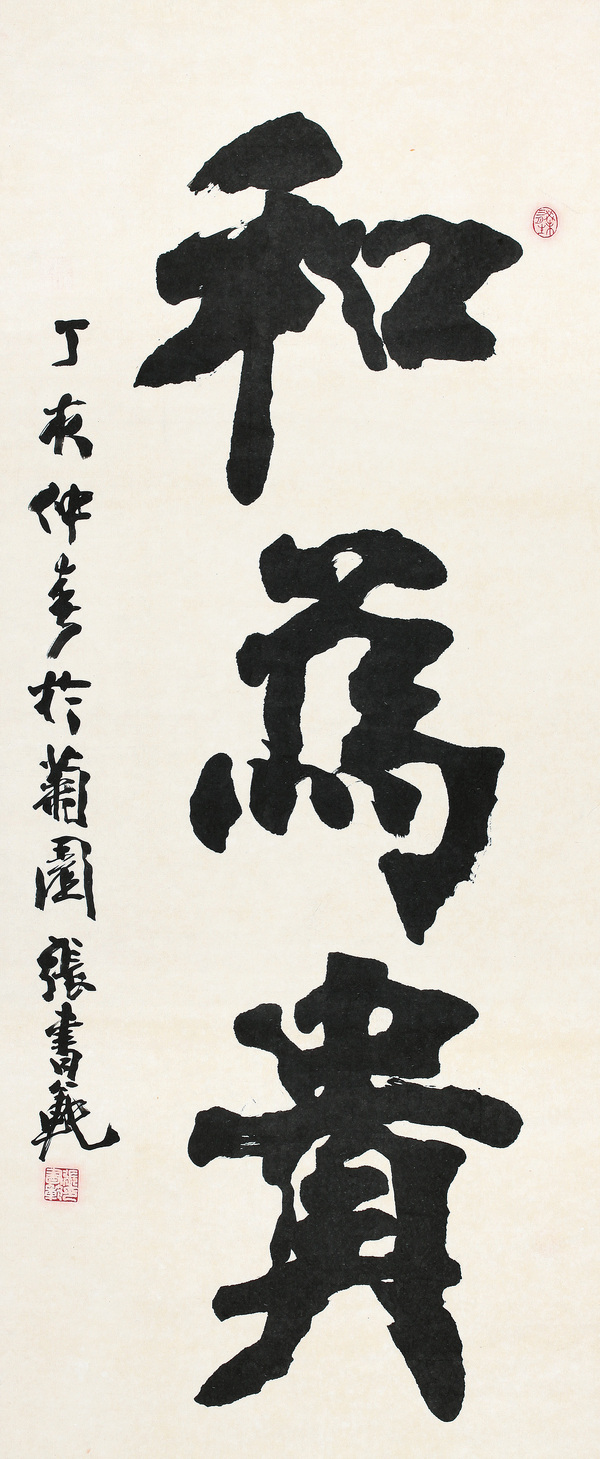 和為貴
丁亥仲春於菊園張書範